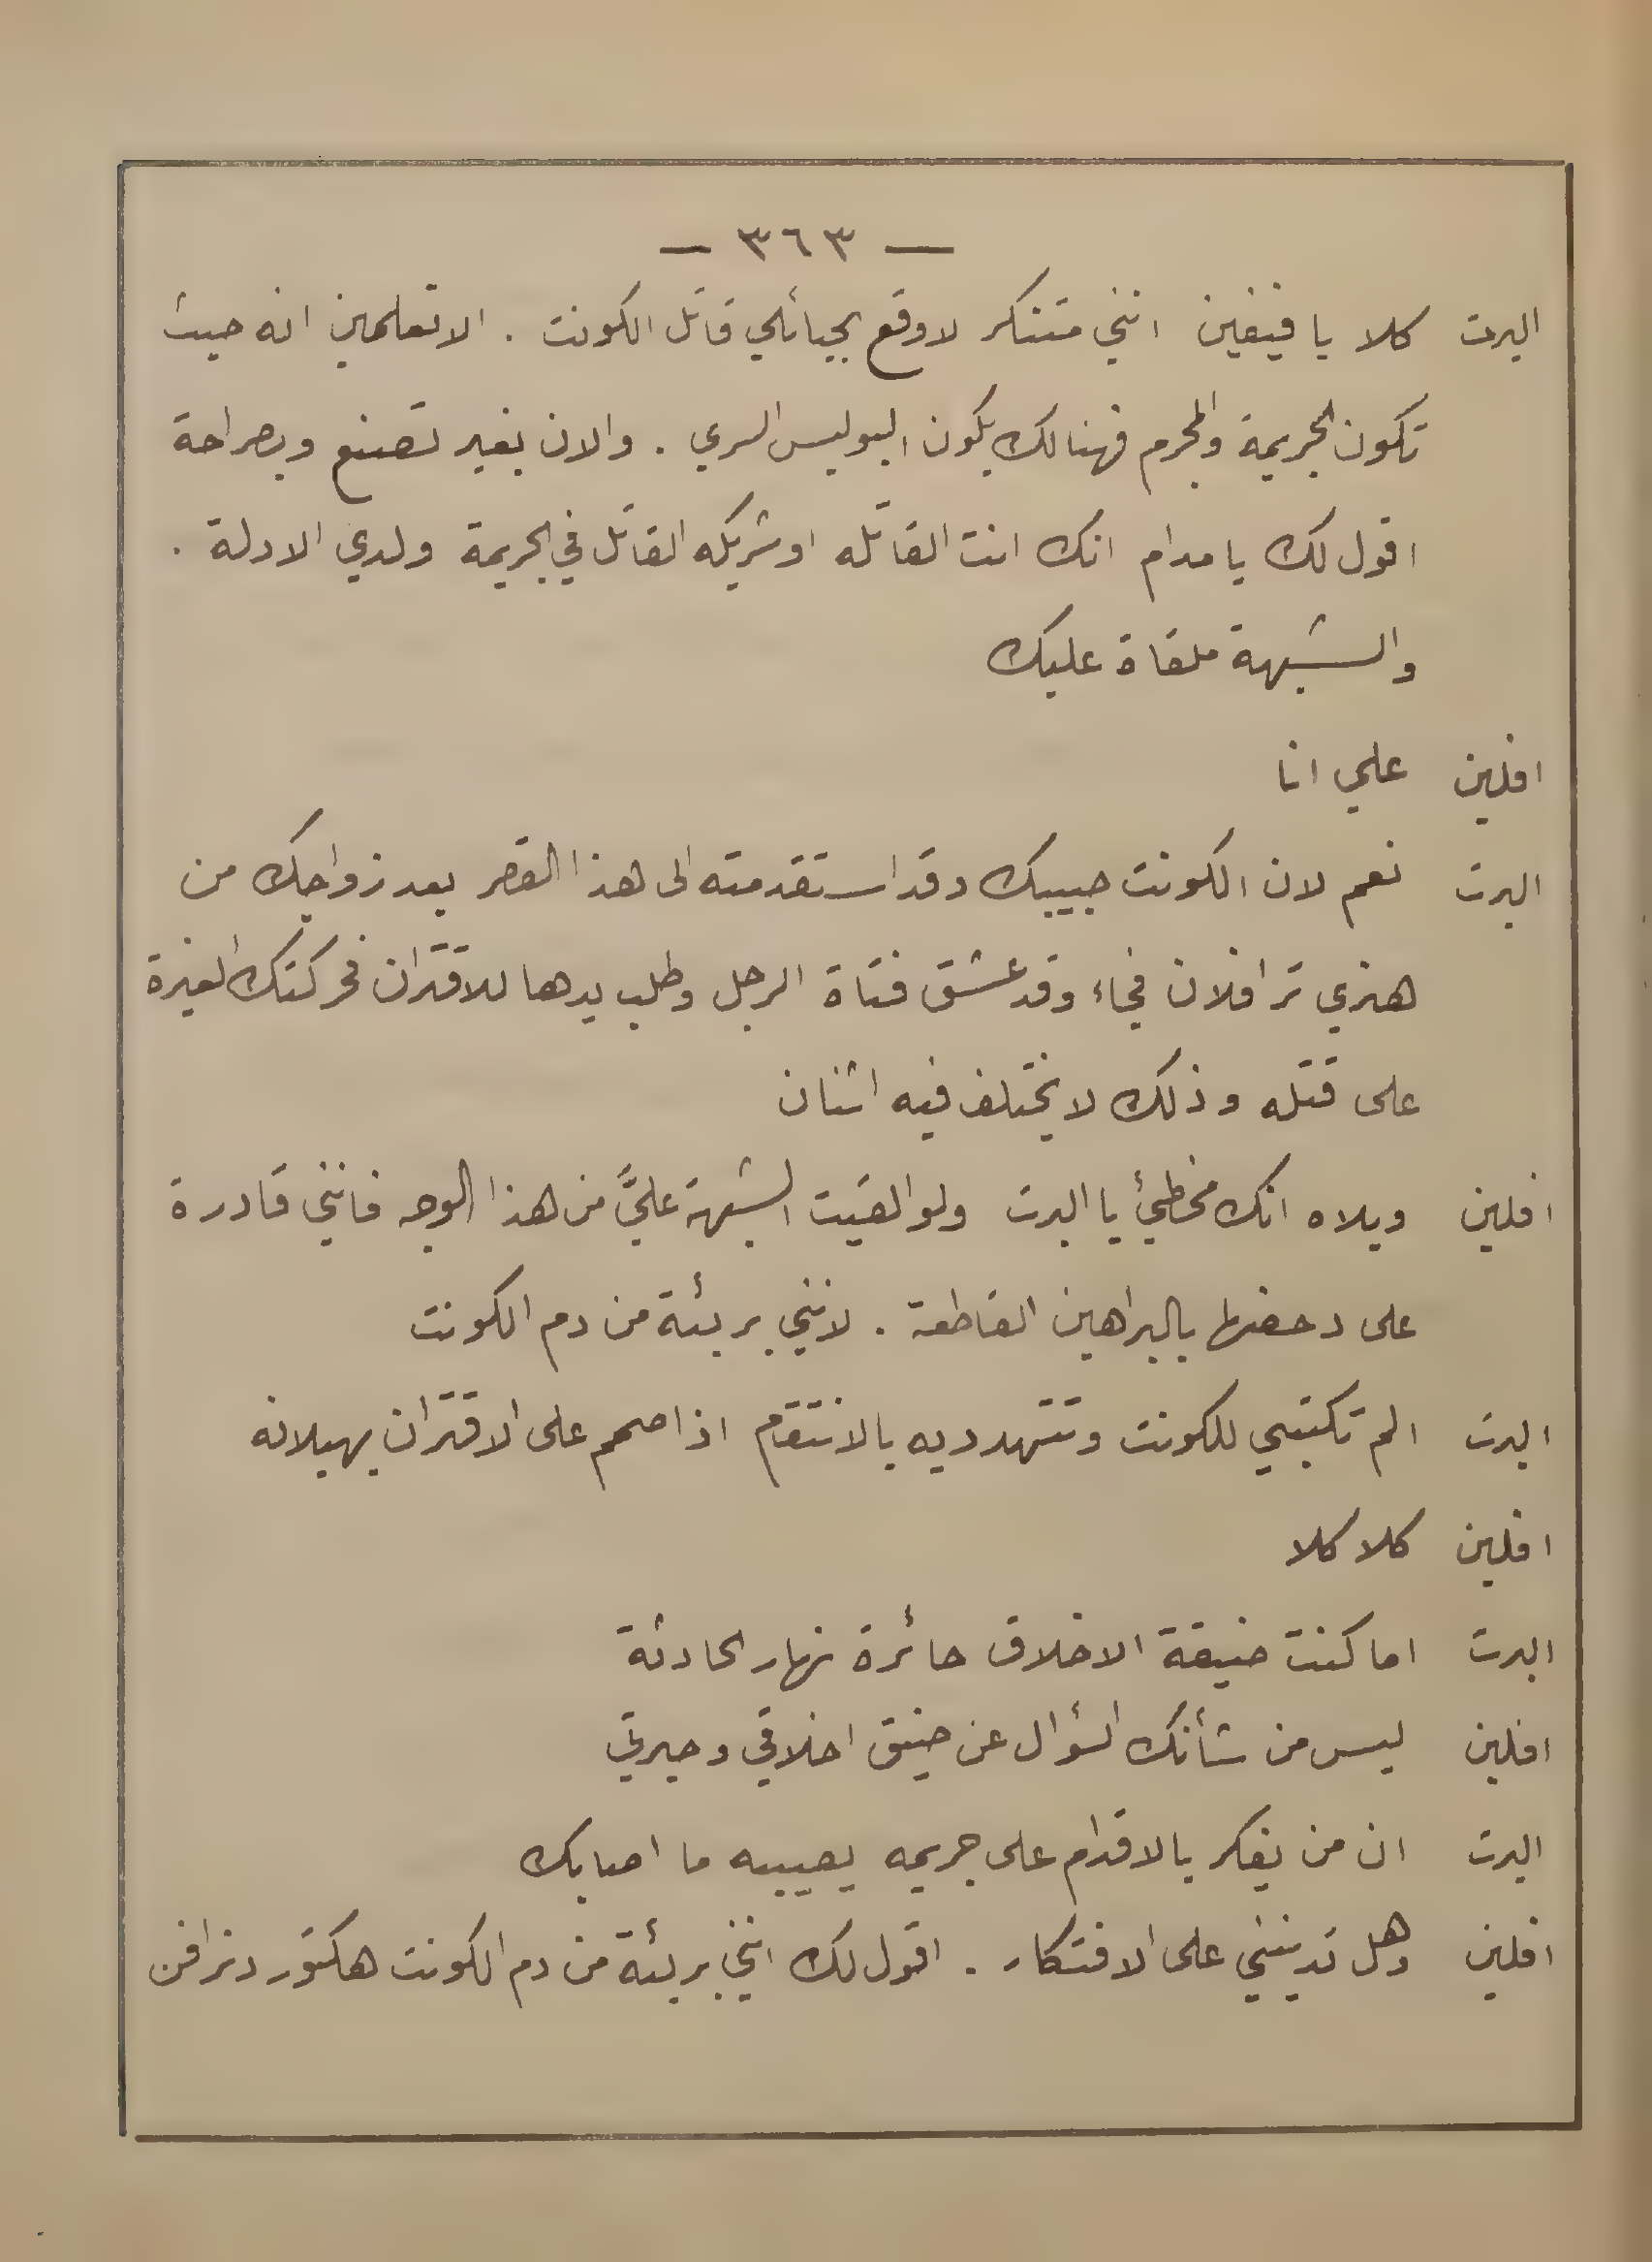 — ٣٦٣ —
البرت كلا يا فيفين انني متنكر لاوقع بحبائلي قاتل الكونت . الا تعلمين انه حيث
تكون الجريمة والمجرم فهنالك يكون البوليس السري . والان بغير تصنع وبصراحة
اقول لك يا مدام انك انت القاتله او شريكه القاتل في الجريمة ولدي الادلة .
والشبهة ملقاة عليك
افلين علي انا
البرت نعم لان الكونت حبيبك وقد استقدمته الى هذا القصر بعد زواجك من
هنري ترافلان فجاء وقد عشق فتاة الرجل وطلب يدها للاقتران فحركتك الغيرة
على قتله وذلك لا يختلف فيه اثنان
افلين ويلاه انك مخطئ يا البرت ولو القيت الشبهة عليَّ من هذا الوجه فانني قادرة
على دحضها بالبراهين القاطعة . لانني بريئة من دم الكونت
البرت الم تكتبي للكونت وتتهدديه بالانتقام اذا صمم على الاقتران بهيلانه
افلين كلا كلا
البرت اما كنت ضيقة الاخلاق حائرة نهار الحادثة
افلين ليس من شأنك السؤال عن ضيق اخلاقي وحيرتي
البرت ان من يفكر بالاقدام على جريمه يصيبه ما اصابك
افلين وهل تدينني على الافتكار . اقول لك انني بريئة من دم الكونت هكتور دترافن